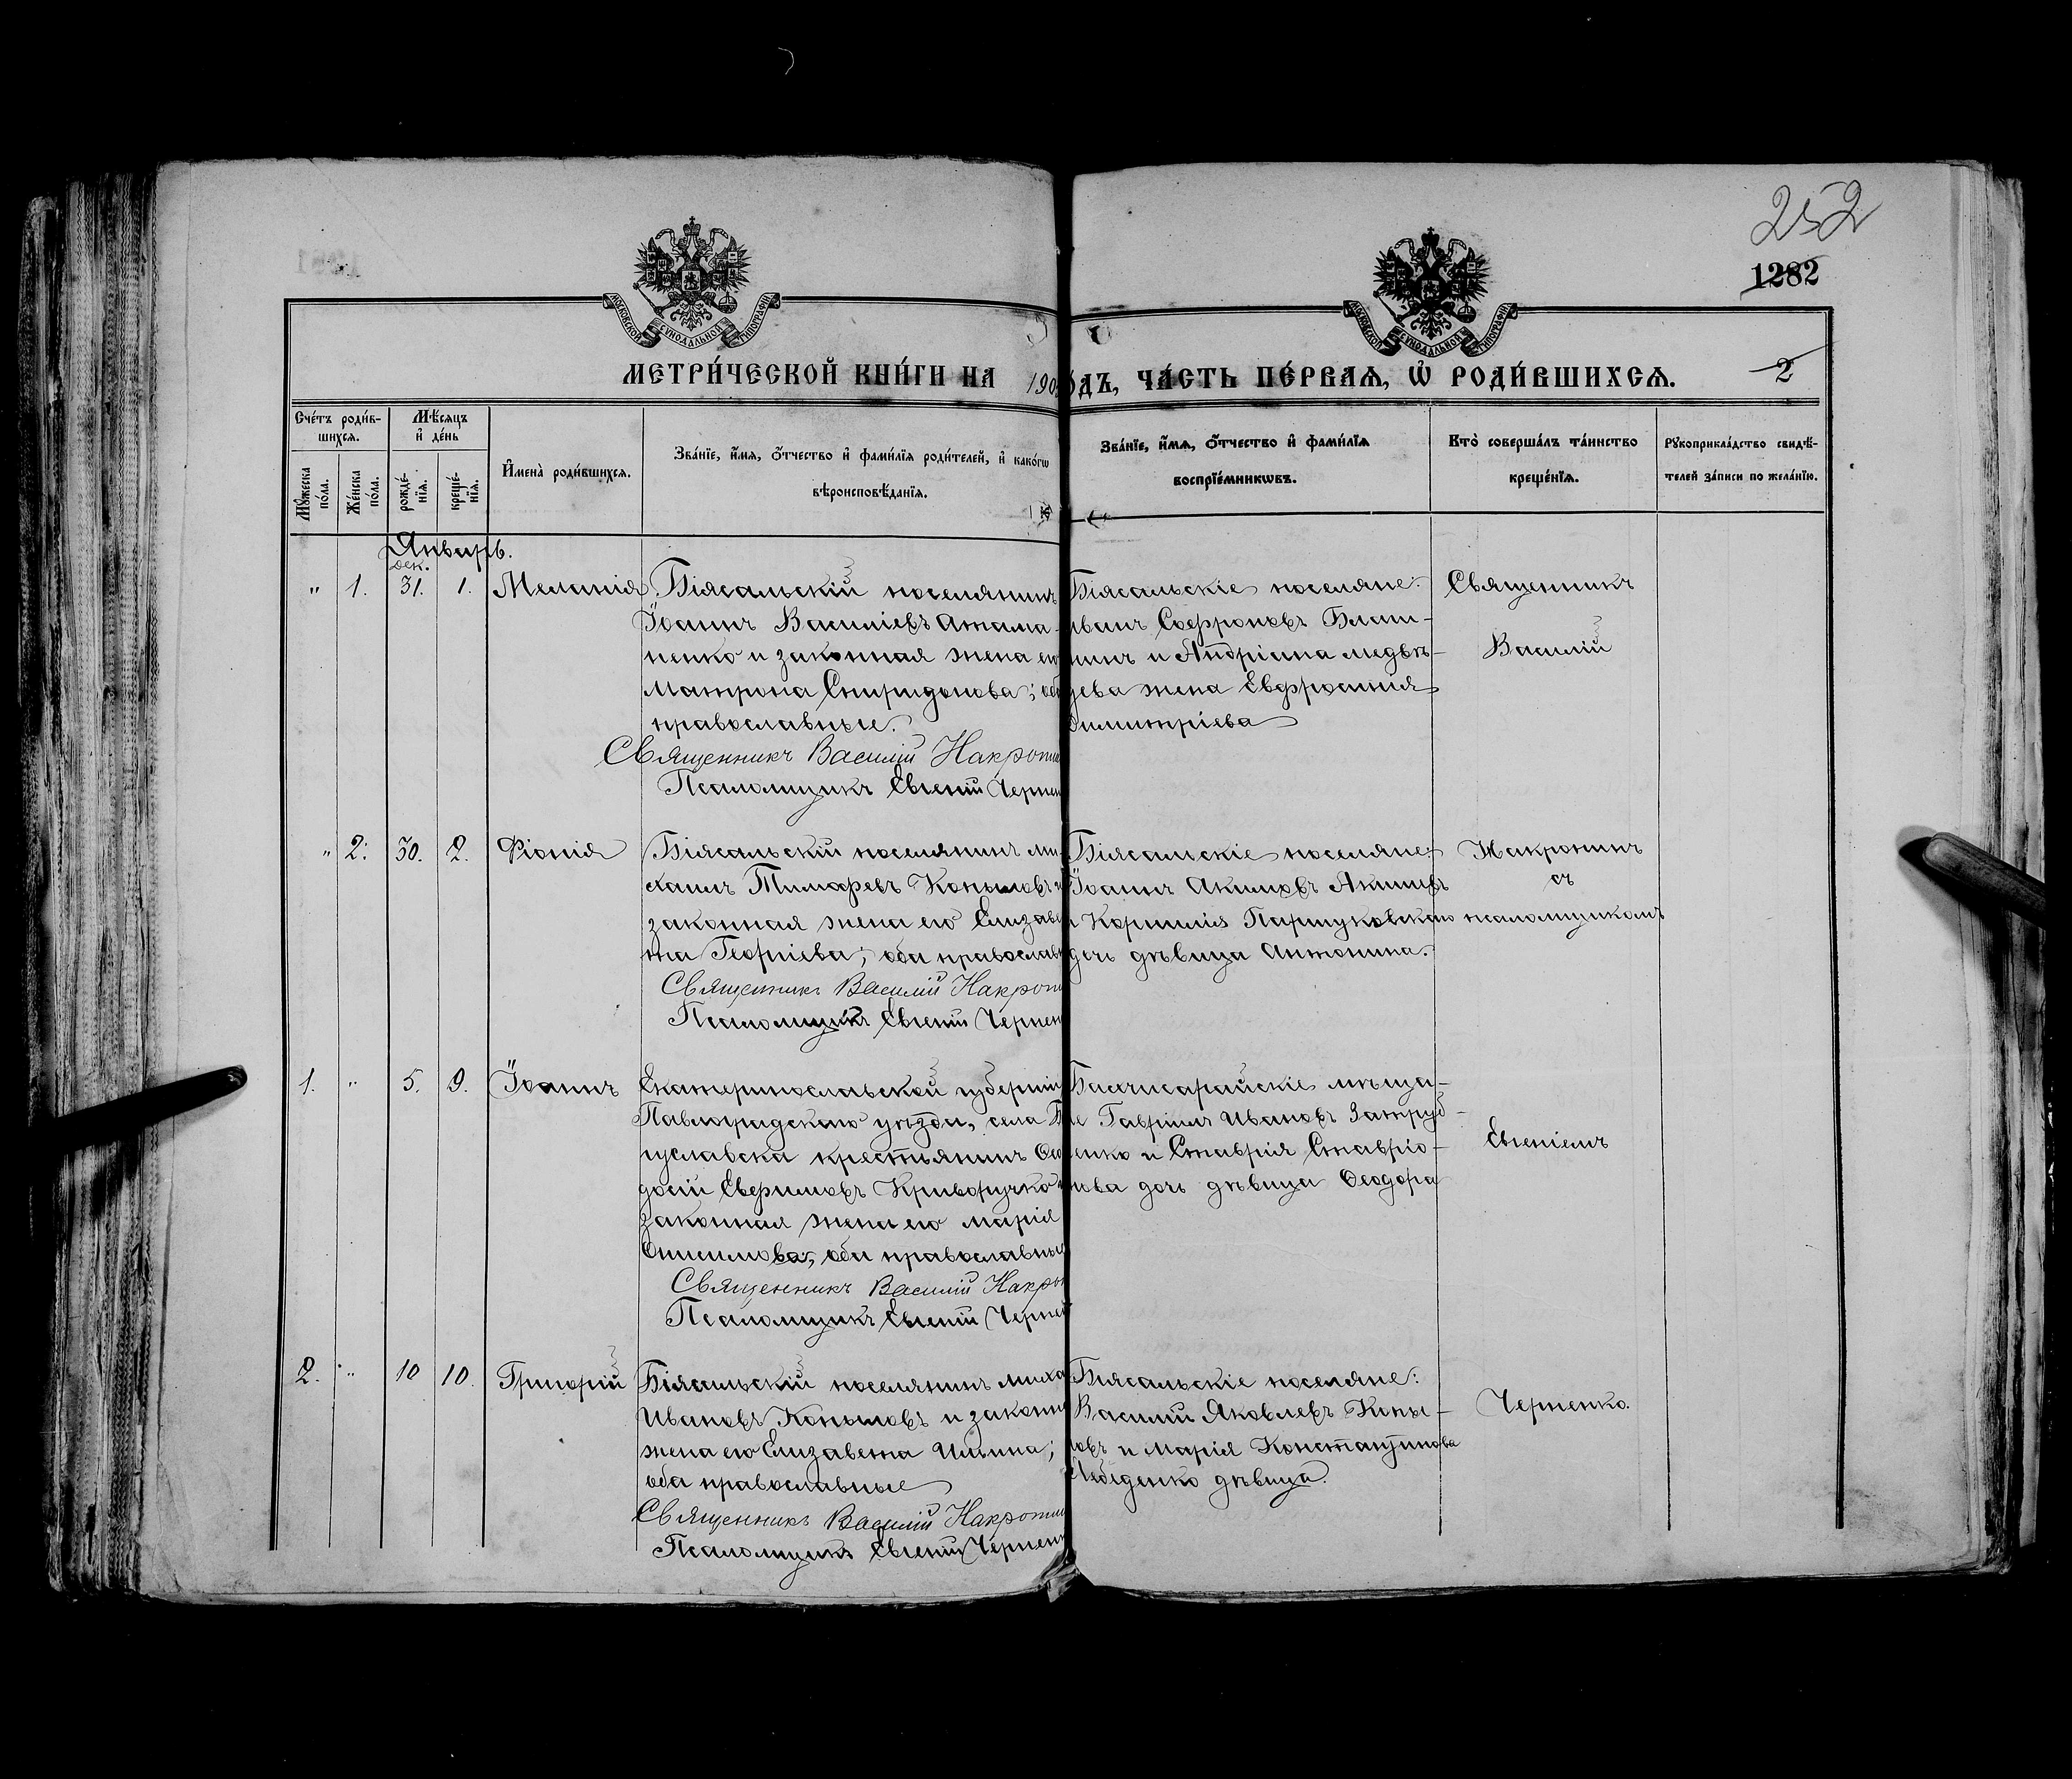 252
1282
МОСКОВСКОЙ СѴНОДАЛЬНОЙ ТИПОГРАФІИ
МОСКОВСКОЙ СѴНОДАЛЬНОЙ ТИПОГРАФІИ
МЕТРИ́ЧЕСКОЙ КНИ́ГИ НА 190 ОДЪ, ЧА́СТЬ ПЕ́РВАѦ, Ѡ҆ РОДИ́ВШИХСѦ. 2
Сче́тъ роди́в-
шихсѧ.
Мꙋ́жеска по́ла.
Же́нска по́ла.
Мѣ́сѧцъ
и҆ де́нь
рожде́-
нїѧ.
креще́-
нїѧ.
И҆мена̀ роди́вшихсѧ.
Зва́нїе, и҆́мѧ, ѻ҆́тчество и҆ фами́лїѧ роди́телей, и҆ како́гѡ
вѣроисповѣ́данїѧ.
Зва́нїе, и҆́мѧ, ѻ҆́тчество и҆ фами́лїѧ
воспрїе́мникѡвъ.
Кто̀ соверша́лъ та́инство
креще́нїѧ.
Рꙋкоприкла́дство свидѣ́-
телей за́писи по жела́нїю.
Январь.
дек.
" 1. 31. 1. Меланія
Біясальскій поселянинъ
Іоаннъ Василіевъ Атама-
ненко и законная жена его
Матрона Спиридонова; об
православные.
Священникъ Василій Накропи
Псаломщикъ Евгеній Чернен
Біясальскіе поселяне:
Иванъ Софроновъ Блат-
нинъ и Андріана Медвѣ-
дева жена Евфросинія
Димитріева
Священникъ
Василій
" 2. 30. 2. Фіонія
Біясальскій поселянинъ Ми-
хаилъ Тимофеевъ Копыловъ и
законная жена его Елизаве
та Георгіева; оба православн
Священникъ Василій Накроп
Псаломщикъ Евгеній Чернен
Біясальскіе поселяне:
Іоаннъ Акимовъ Акимовъ
и Корнилія Паршуковскаго
дочь дѣвица Антонина.
Накропинъ
съ
псаломщикомъ
1. " 5. 9. Іоаннъ
Екатеринославской губерніи
Павлоградскаго уѣзда, села Б
гуславска крестьянинъ Ѳео
досій Евфимовъ Криворучко и
законная жена его Марія
Онисимова; оба православные
Священникъ Василій Накро
Псаломщикъ Евгеній Черне
Бахчисарайскіе мѣща-
не Гавріилъ Ивановъ Затруб-
енко и Ставрія Ставріо-
нова дочь дѣвица Ѳеодора
Евгеніемъ
2. " 10 10. Григорій
Біясальскій поселянинъ Миха
Ивановъ Копыловъ и законн
жена его Елизавета Ильина;
оба православные
Священникъ Василій Накропи
Псаломщикъ Евгеній Чернен
Біясальскіе поселяне:
Василій Яковлевъ Копы-
ловъ и Марія Константинова
Лебеденко дѣвица.
Черненко.